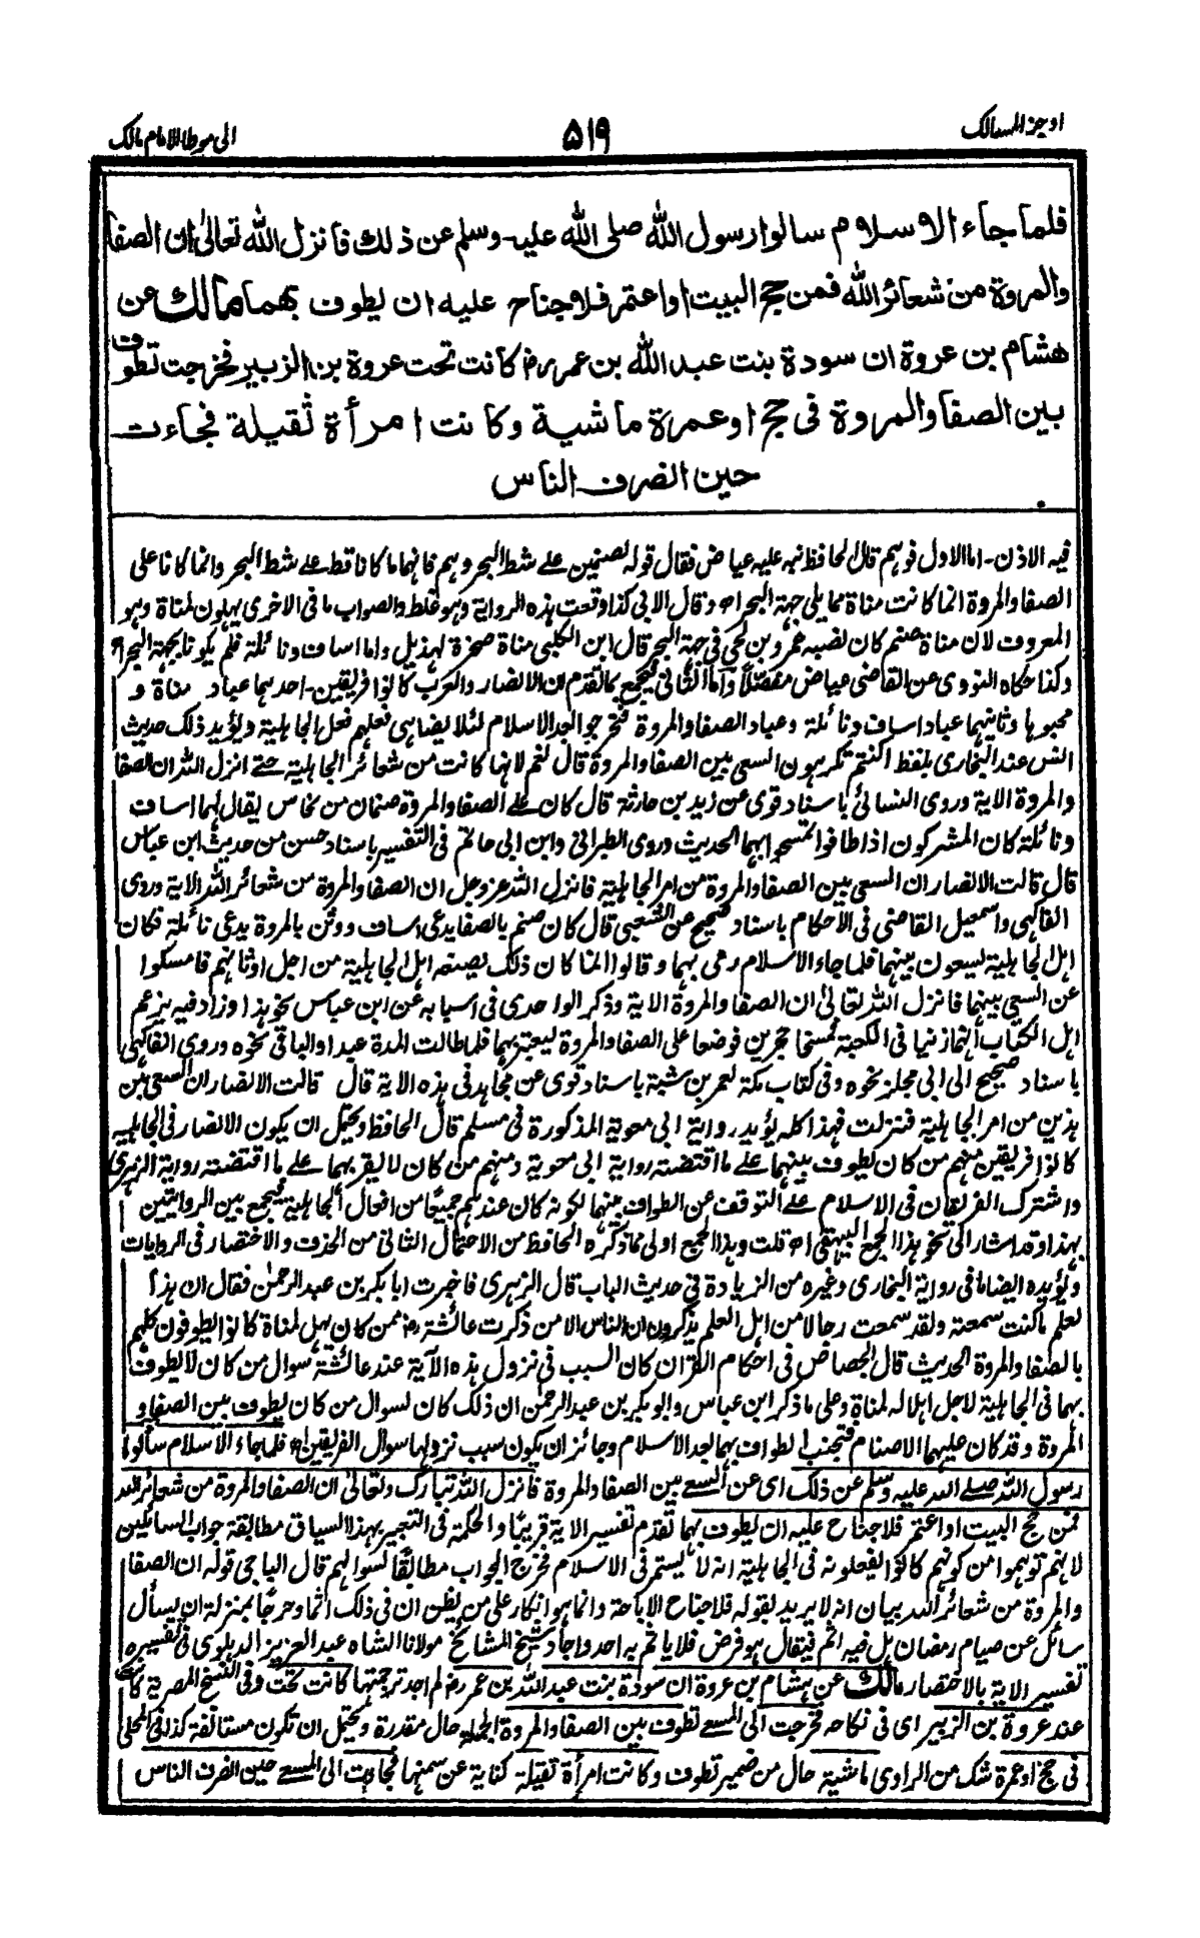 اوجز المسالك
۵۱۹
الى موطا الامام مالك
فلما جاء الاسلام سالوا رسول الله صلى الله عليه وسلم عن ذلك فانزل الله تعالىٰ ان الصفا
والمروة من شعائر الله فمن حج البيت او اعتمر فلا جناح عليه ان يطوف بهما مالك عن
هشام بن عروة ان سودة بنت عبد الله بن عمر رض كانت تحت عروة بن الزبير فخرجت تطوف
بين الصفا والمروة فى حج او عمرة ماشية وكانت امرأة ثقيلة فجاءت
حين انصرف الناس
فيه الاذن۔ اما الاول فوهم قال الحافظ نبه عليه عياض فقال قوله لصنمين على شط البحر وهم فانهما ما كانا قط على شط البحر وانما كانا على
الصفا والمروة انما كانت مناة مما يلى جهة البحر اھ وقال الابى كذا وقعت هذه الرواية وهو غلط والصواب ما فى الاخرى يهلون لمناة وهو
المعروف لان مناة صنم كان نصبه عمرو بن لحى فى جهة البحر قال ابن الكلبى مناة صخرة لهذيل واما اساف ونائلة فلم يكونا بجهة البحر اھ
وكذا حكاه النووى عن القاضى عياض مفصلاً واما الثانى فيجمع بما تقدم ان الانصار والعرب كانوا فريقين۔ احدهما عباد مناة و
محبوها وثانيهما عباد اساف ونائلة وعباد الصفا والمروة فتحرجوا بعد الاسلام لئلا يضاهى فعلهم فعل الجاهلية ويؤيد ذلك حديث
انس عند البخارى بلفظ اكنتم تكرهون السعى بين الصفا والمروة قال نعم لانها كانت من شعائر الجاهلية حتى انزل الله ان الصفا
والمروة الاية وروى النسائى باسناد قوى عن زيد بن حارثة قال كان على الصفا والمروة صنمان من نحاس يقال لهما اساف
ونائلة كان المشركون اذا طافوا تمسحوا بهما الحديث وروى الطبرانى وابن ابى حاتم فى التفسير باسناد حسن من حديث ابن عباس
قال قالت الانصار ان السعى بين الصفا والمروة من امر الجاهلية فانزل الله عزوجل ان الصفا والمروة من شعائر الله الاية وروى
الفاكهى واسمعيل القاضى فى الاحكام باسناد صحيح عن الشعبى قال كان صنم بالصفا يدعى اساف ووثن بالمروة يدعى نائلة فكان
اهل الجاهلية يسعون بينهما فلما جاء الاسلام رمى بهما وقالوا انما كان ذلك يصنعه اهل الجاهلية من اجل اوثانهم فامسكوا
عن السعى بينهما فانزل الله تعالىٰ ان الصفا والمروة الاية وذكر الواحدى فى اسبابه عن ابن عباس نحو هذا وزاد فيه يزعم
اهل الكتاب انهما زنيا فى الكعبة فمسخا حجرين فوضعا على الصفا والمروة ليعتبر بهما فلما طالت المدة عبدا والباقى نحوه وروى الفاكهى
باسناد صحيح الى ابى مجلز نحوه وفى كتاب مكة لعمر بن شبة باسناد قوى عن مجاهد فى هذه الاية قال قالت الانصار ان السعى بين
هذين من امر الجاهلية فنزلت فهذا كله يؤيد رواية ابى معوية المذكورة فى مسلم قال الحافظ ويحتمل ان يكون الانصار فى الجاهلية
كانوا فريقين منهم من كان يطوف بينهما على ما اقتضته رواية ابى معوية ومنهم من كان لا يقربهما على ما اقتضته رواية الزهرى
واشترك الفريقان فى الاسلام على التوقف عن الطواف بينهما لكونه كان عندهم جميعًا من افعال الجاهلية فيجمع بين الروايتين
بهذا وقد اشار الى نحو هذا الجمع البيهقى اھ قلت وهذا الجمع اولى مما ذكره الحافظ من الاحتمال الثانى من الحذف والاختصار فى الروايات
ويؤيده ايضا ما فى رواية البخارى وغيره من الزيادة فى حديث الباب قال الزهرى فاخبرت ابا بكر بن عبد الرحمٰن فقال ان هذا
لعلم ما كنت سمعته ولقد سمعت رجالا من اهل العلم يذكرون ان الناس الا من ذكرت عائشة رض ممن كان يهل لمناة كانوا يطوفون كلهم
بالصفا والمروة الحديث قال الجصاص فى احكام القرآن كان السبب فى نزول هذه الآية عند عائشة سوال من كان لا يطوف
بهما فى الجاهلية لاجل اهلاله لمناة وعلى ما ذكر ابن عباس وابو بكر بن عبد الرحمٰن ان ذلك كان لسوال من كان يطوف بين الصفا و
المروة وقد كان عليهما الاصنام فتجنب الطواف بهما بعد الاسلام وجائز ان يكون سبب نزولها سوال الفريقين اھ فلما جاء الاسلام سألوا
رسول الله صلى الله عليه وسلم عن ذلك اى عن السعى بين الصفا والمروة فانزل الله تبارك وتعالىٰ ان الصفا والمروة من شعائر الله
فمن حج البيت او اعتمر فلا جناح عليه ان يطوف بهما تقدم تفسير الاية قريبًا والحكمة فى التعبير بهذا السياق مطابقة جواب السائلين
لانهم توهموا من كونهم كانوا يفعلونه فى الجاهلية انه لا يستمر فى الاسلام فخرج الجواب مطابقًا لسوالهم قال الباجى قوله ان الصفا
والمروة من شعائر الله بيان انه لا يريد بقوله فلا جناح الاباحة وانما هو انكار على من يظن ان فى ذلك اثما وحرجًا بمنزلة ان يسأل
سائل عن صيام رمضان هل فيه اثم فيقال هو فرض فلا ياثم به احد واجاد شيخ المشائخ مولانا الشاه عبد العزيز الدهلوى فى تفسيره
تفسير الاية بالاختصار مالك عن هشام بن عروة ان سودة بنت عبد الله بن عمر رض لم اجد ترجمتها كانت تحت وفى النسخ المصرية كانت
عند عروة بن الزبير اى فى نكاحه فخرجت الى المسعى تطوف بين الصفا والمروة الجملة حال مقدرة ويحتمل ان تكون مستانفة كذا فى المحلى
فى حج او عمرة شك من الراوى ماشية حال من ضمير تطوف وكانت امرأة ثقيلة كناية عن سمنها فجاءت الى المسعى حين انصرف الناس